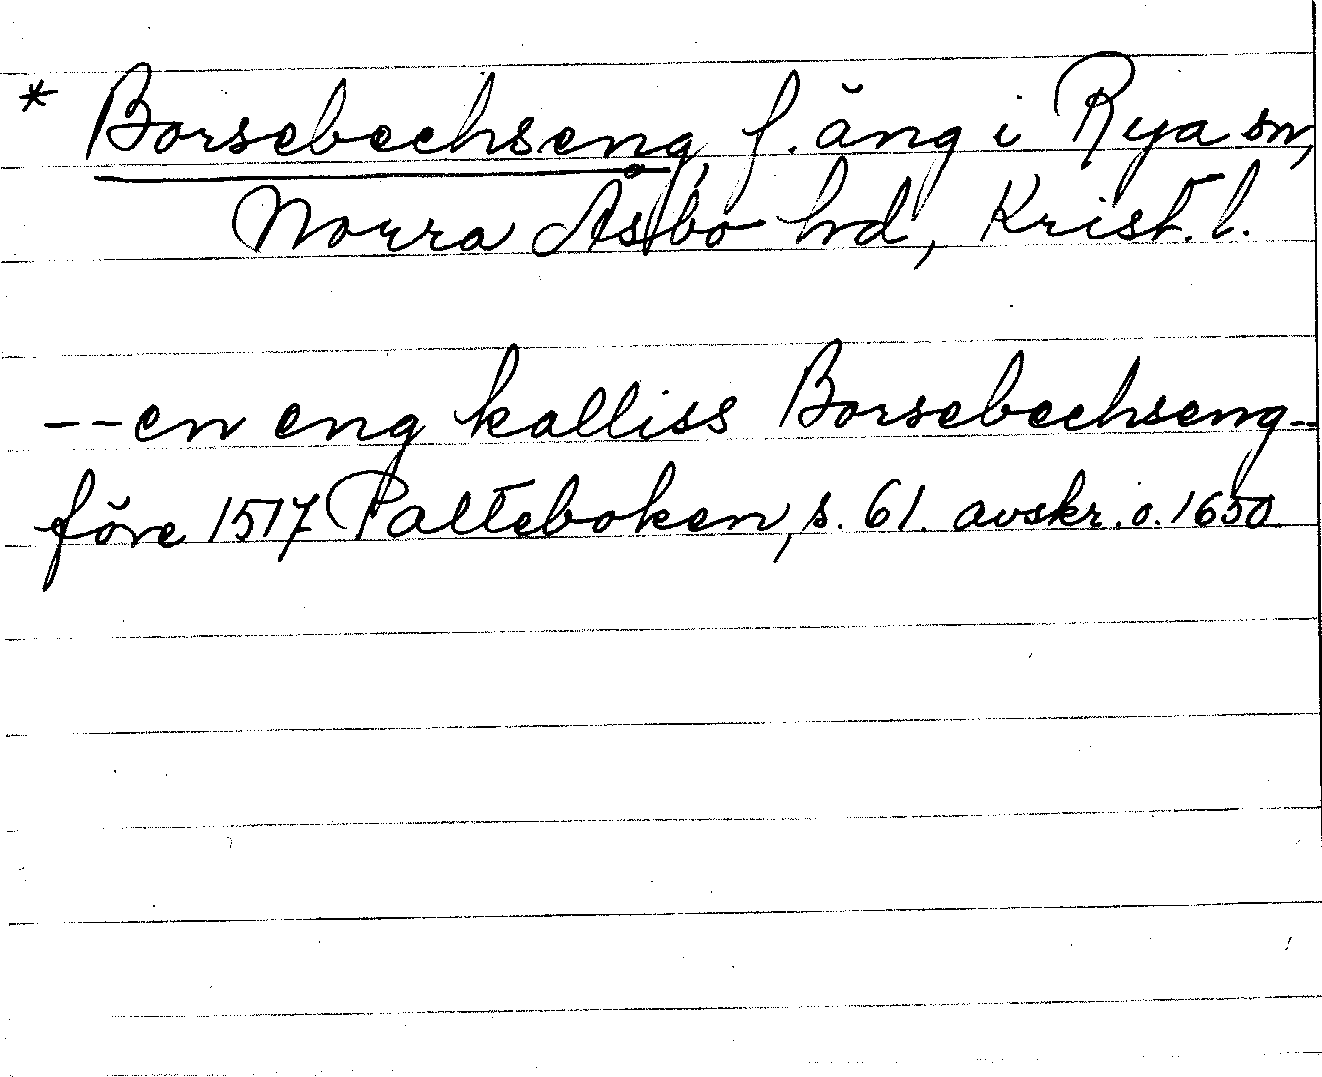 * Borsebechseng, f. äng i Rya sn,
Norra Åsbo hd, Krist. l.
--en eng kalliss Borsebechseng--
före 1517 Palteboken, s. 61. avskr. o. 1650